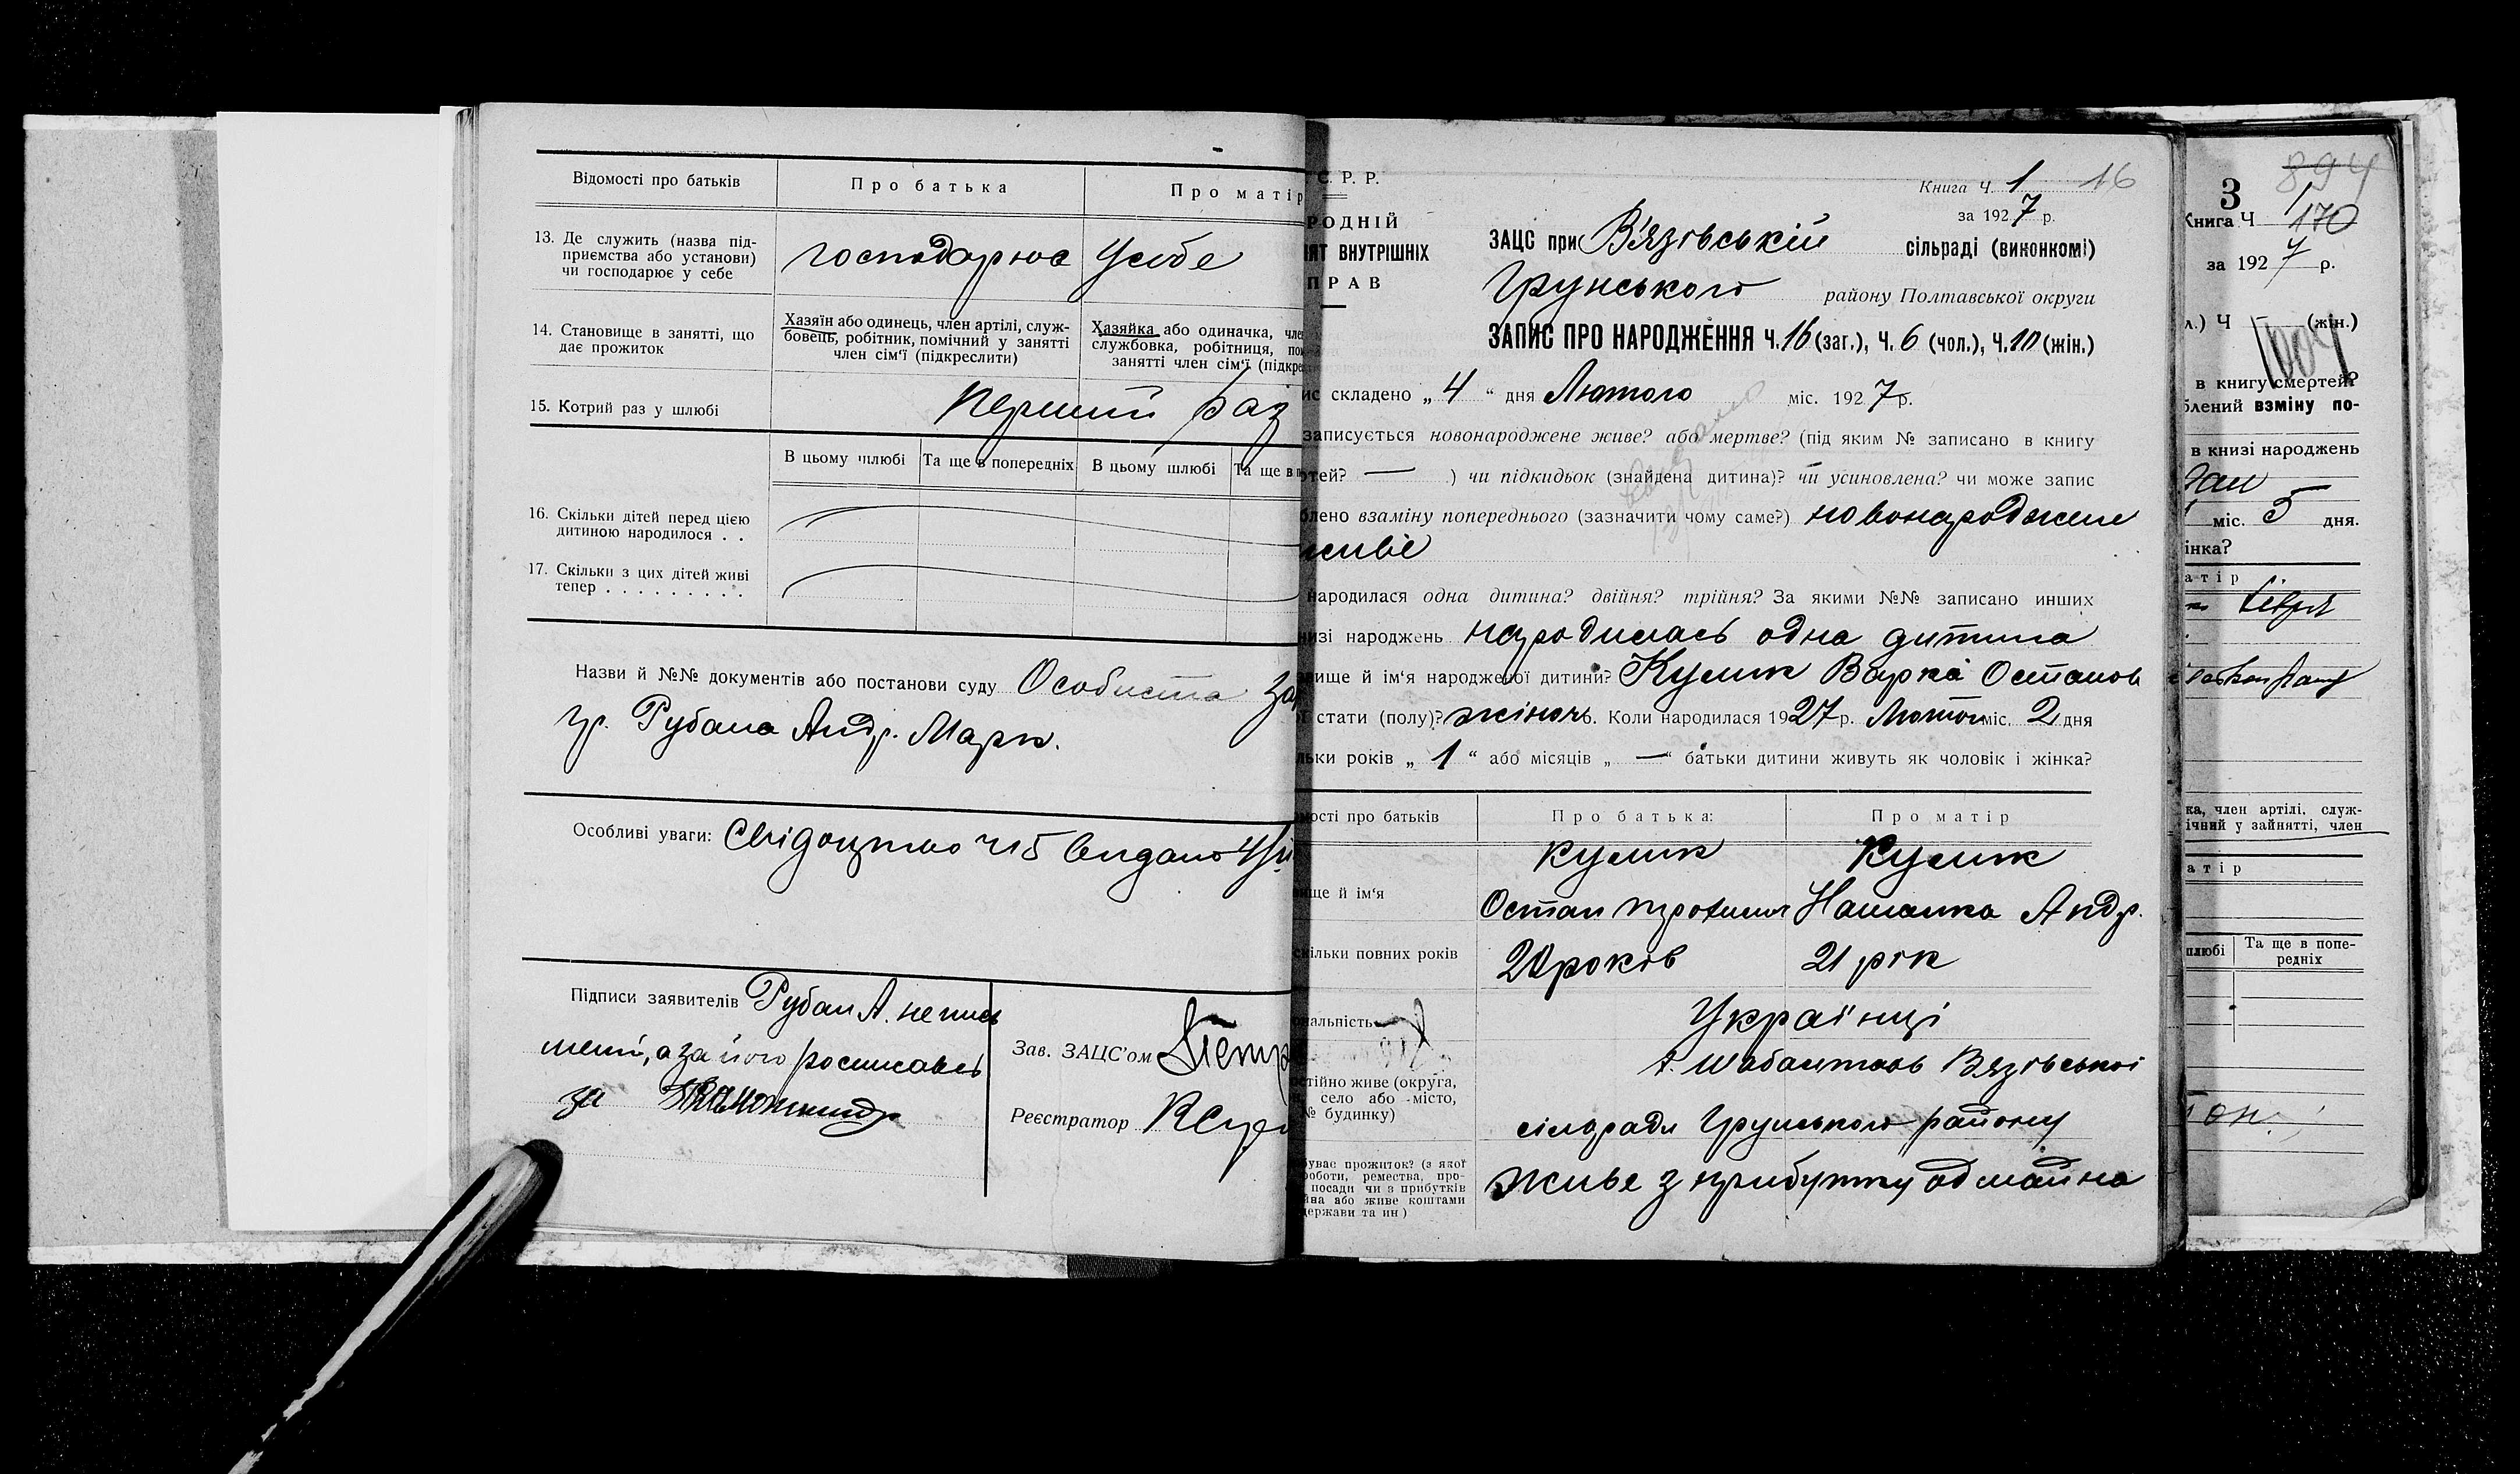 Відомості про батьків
Про батька
Про матір
13. Де служить (назва під-
приємства або установи)
чи господарює у себе
господарює у себе
14. Становище в занятті, що
дає прожиток
Хазяїн або одинець, член артілі, служ-
бовець, робітник, помічний у занятті
член сім'ї (підкреслити)
Хазяйка або одиначка, чле
службовка, робітниця, по
занятті член сім'ї (підкре
15. Котрий раз у шлюбі
перший раз
В цьому шлюбі
Та ще в попередніх
В цьому шлюбі
Та ще в п
16. Скільки дітей перед цією
дитиною народилося . .
17. Скільки з цих дітей живі
тепер . . . . . . . . .
Назви й №№ документів або постанови суду Особиста за
гр. Рубана Андр. Марк.
Особливі уваги: Свідоцтво ч 15 видано
Підписи заявителів Рубан А. непись
мений, а за його росписавсь
за
Зав. ЗАЦС'ом Петр
Реєстратор
С. Р. Р.
РОДНІЙ
ІЯТ ВНУТРІШНІХ
ПРАВ
Книга Ч. 1 16
за 1927 р.
ЗАЦС при В'язівській сільраді (виконкомі)
Грунського району Полтавської округи
ЗАПИС ПРО НАРОДЖЕННЯ Ч. 16 (заг.), Ч. 6 (чол.), Ч. 10 (жін.)
ис складено „ 4 “ дня Лютого міс. 1927 р.
записується новонароджене живе? або мертве? (під яким № записано в книгу
ртей? — ) чи підкидьок (знайдена дитина)? чи усиновлена? чи може запис
блено взаміну попереднього (зазначити чому саме?) новонароджене
живе
народилася одна дитина? двійня? трійня? За якими №№ записано инших
низі народжень народилась одна дитина
вище й ім'я народженої дитини? Кулик Варка Остапов
стати (полу)? жіноч ь. Коли народилася 1927 р. Лютого міс. 2 дня
льки років „ 1 “ або місяців „ — “ батьки дитини живуть як чоловік і жінка?
мості про батьків
Про батька:
Про матір
вище й ім'я
Кулик
Остап
Кулик
Наталка Андр.
скільки повних років
20 років
21 рік
ональність
Українці
стійно живе (округа,
село або місто,
№ будинку)
х. Шабалтаєв Вязівської
сілради Грунського району
буває прожиток? (з якої
роботи, ремества, про-
посади чи з прибутків
йва або живе коштами
держави та ин)
живе з прибутку од майна
3
894
1
Книга Ч 170
за 1927 р.
л.) Ч — (жін.)
1004
в книгу смертей?
блений взміну по-
в книзі народжень
міс. 5 дня.
інка?
атір
ка, член артілі, служ-
ічний у зайнятті, член
атір
шлюбі
Та ще в попе-
редніх